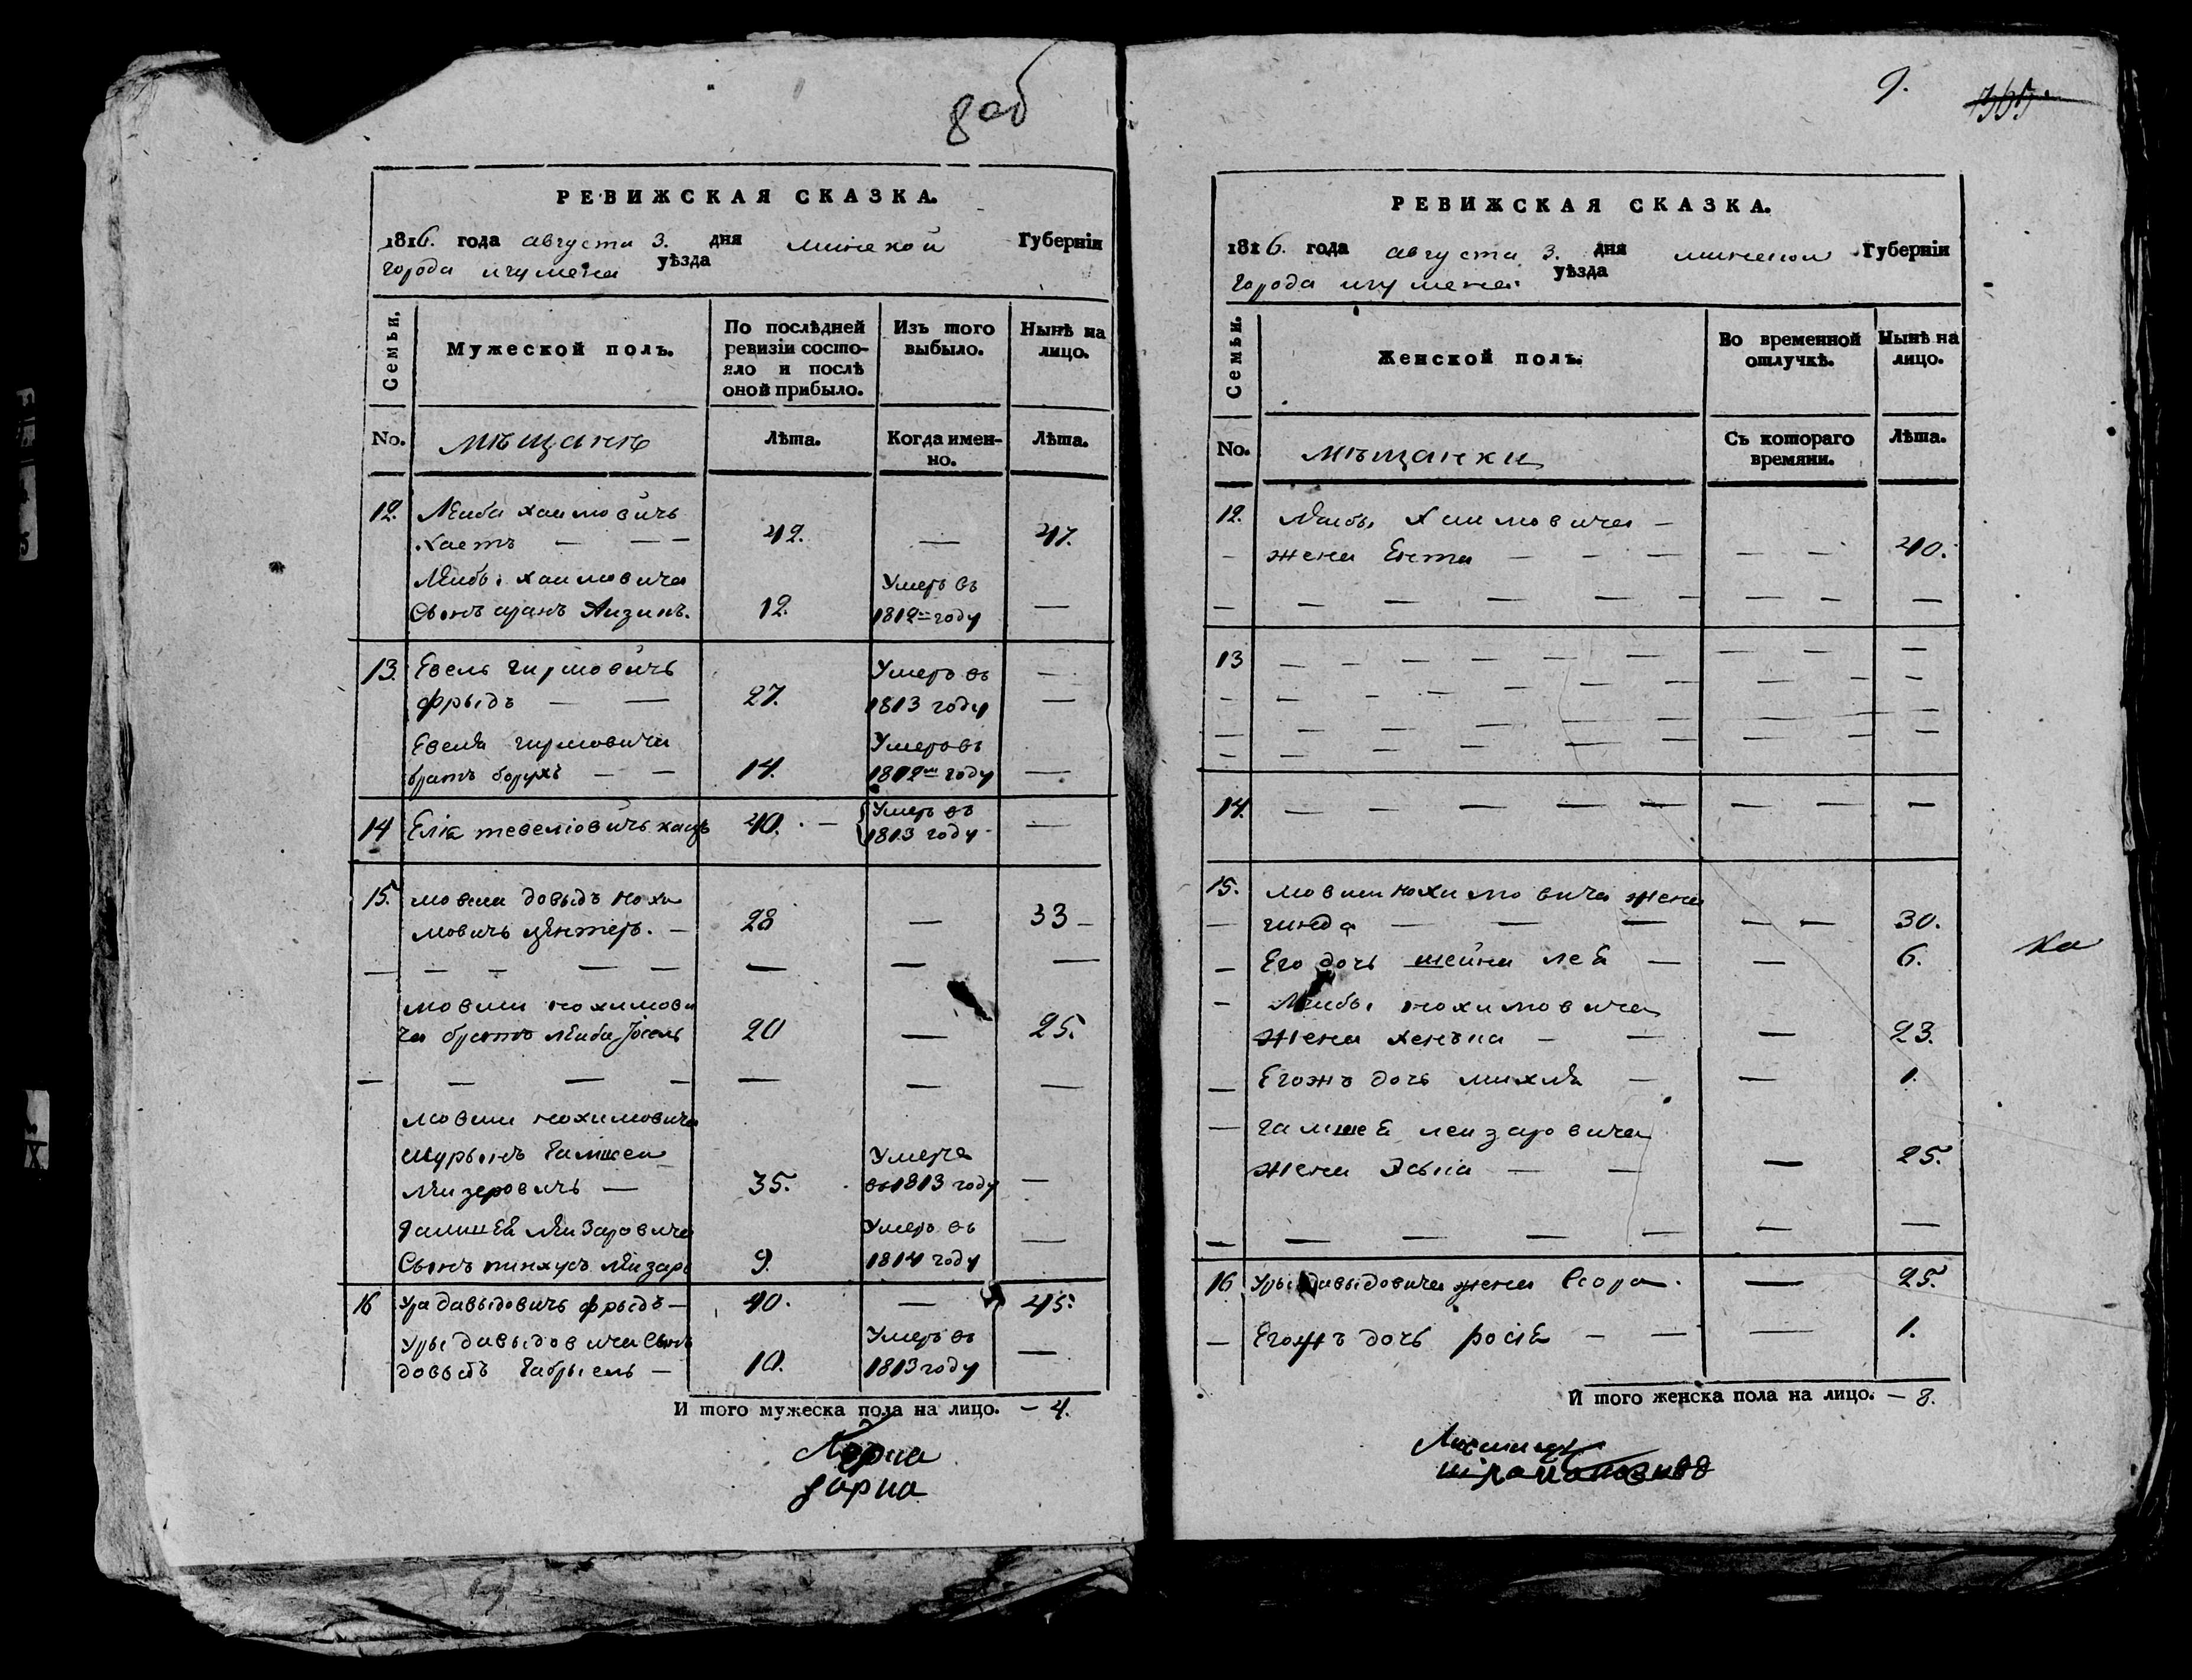 8об
РЕВИЖСКАЯ СКАЗКА.
1816. года августа 3. дня минской Губерніи
города игумена уѣзда
Семьи.
Мужеской полъ.
По послѣдней ревизіи состояло и послѣ оной прибыло.
Изъ того выбыло.
Нынѣ на лицо.
No. мѣщанѣ Лѣта. Когда именно. Лѣта.
12. Лейба хаимовичъ
хаетъ — — — 42. — 47.
Лейбы хаимовича Умеръ въ
Сынъ аранъ Аизикъ. 12. 1812м году —
13. Евель гиршовичъ Умеръ въ —
фрыдъ — — 27. 1813 году —
Евеля гиршовича Умеръ въ
братъ борухъ — — 14. 1812м году —
14 Еліа тевеліовичъ кацъ 40. — Умеръ въ
1813 году —
15. мовша довыдъ нохи
мовичъ цынтеръ. — 28 — 33 —
— — — — — — — —
мовши нохимови
ча братъ лейба Іосель 20 — 25.
— — — — — — —
мовши нохимовича
шурынъ Гамшеи Умерѣ
лейзеровичъ — 35. въ 1813 году —
гамшея лейзаровича Умеръ въ —
Сынъ пинхусъ лейзаръ 9. 1814 году
16 ура давыдовичъ фрыдъ — 40. — 45.
уры давыдовича Сынъ Умеръ въ
довыдъ Габрыель — 10. 1813 году —
И того мужеска пола на лицо. — 4.
9.
РЕВИЖСКАЯ СКАЗКА.
1816. года августа 3. дня минской Губерніи
города игумена. уѣзда
Семьи.
Женской полъ.
Во временной отлучкѣ.
Нынѣ на лицо.
No. мѣщанки Съ котораго времяни. Лѣта.
12. Лейбы Хаимовича —
— жена Ента — — — — — 40.
— — — — — — — — —
13 — — — — — — — — —
— — — — — — — — — —
— — — — — — — — — —
— — — — — — — — — —
14. — — — — — — — —
15. мовши нохимовича жена
— гинда — — — — — 30.
— Его дочь шейна лея — — 6.
— Лейбы нохимовича
жена хенька — — — 23.
— Егожъ дочь михля — — 1.
— гамшея леизаровича
жена Эська — — — 25.
— — — — — — —
16 уры давыдовича жена Сора. — 25.
— Егожъ дочь росія — — — 1.
И того женска пола на лицо. — 8.